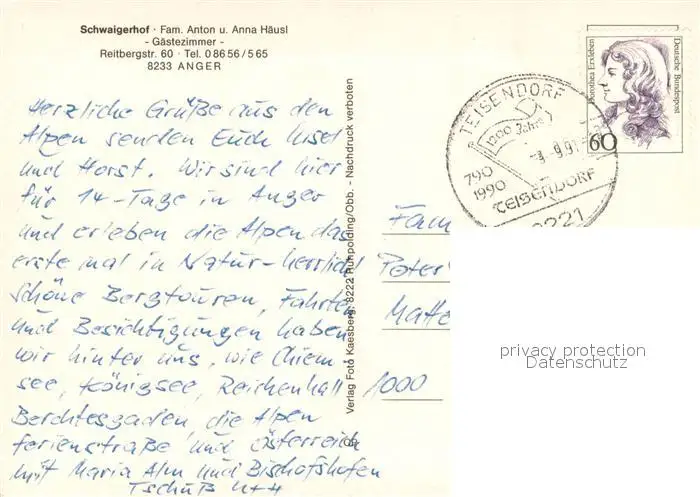 Schwaigerhof · Fam. Anton u. Anna Häusl
- Gästezimmer -
Reitbergstr. 60 · Tel. 0 86 56 / 5 65
8233 ANGER
Herzliche Grüße aus den
Alpen senden Euch
und Horst. Wir sind hier
für 14-Tage in Anger
und erleben die Alpen das
erste mal in Natur-herrlich
schöne Bergtouren, Fahrten
und Besichtigungen haben
wir hinter uns, wie Chiem-
see, Königsee, Reichenhall
Berchtesgaden, die Alpen
ferienstraße und Österreich
mit Maria Alm und Bischofshofen
Tschüß
Verlag Foto Kaesberg, 8222 Ruhpolding/Obb. - Nachdruck verboten
TEISENDORF
1200 Jahre
790
1990
TEISENDORF
8221
Dorothea Erxleben
Deutsche Bundespost
60
Fam
Peter
Matte
1000
privacy protection
Datenschutz